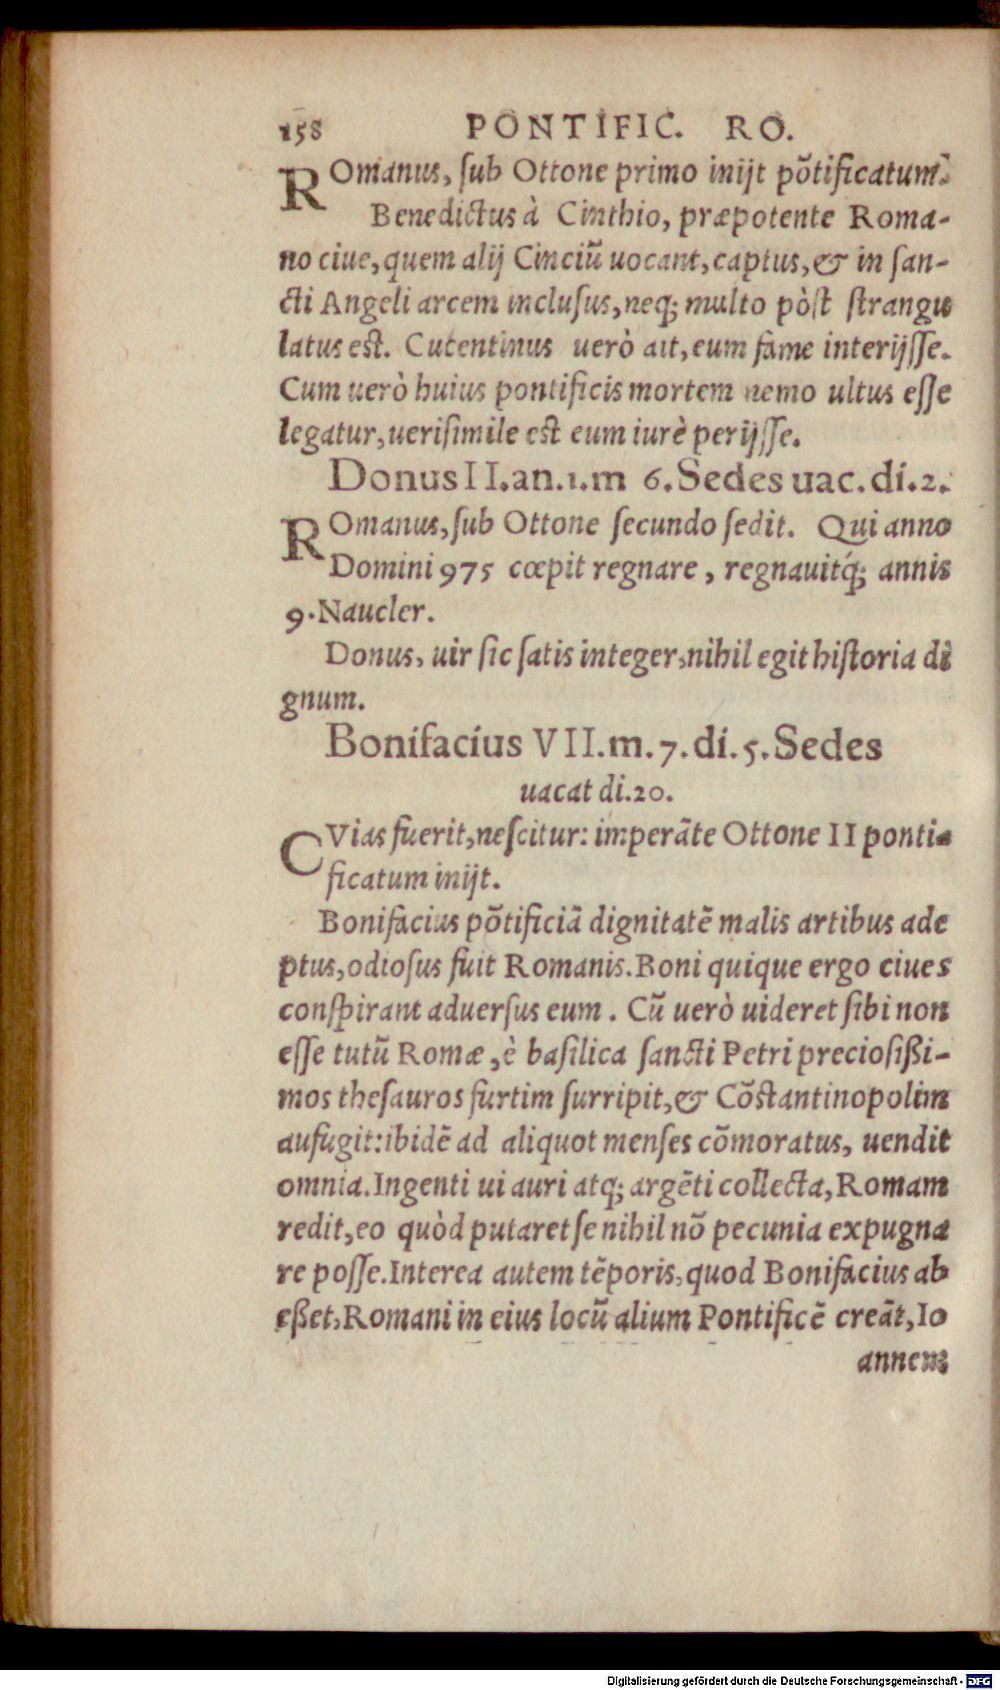 158 PONTIFIC. RO.
ROmanus, sub Ottone primo inijt põtificatum.
Benedictus à Cinthio, præpotente Roma-
no ciue, quem alij Cinciũ uocant, captus, & in san-
cti Angeli arcem inclusus, neq; multo pòst strangu
latus est. Cutentinus uerò ait, eum fame interijsse.
Cum uerò huius pontificis mortem nemo ultus esse
legatur, uerisimile est eum iurè perijsse.
Donus II. an. 1. m 6. Sedes uac. di. 2.
ROmanus, sub Ottone secundo sedit. Qui anno
Domini 975 cœpit regnare, regnauitq́; annis
9. Naucler.
Donus, uir sic satis integer, nihil egit historia di
gnum.
Bonifacius VII. m. 7. di. 5. Sedes
uacat di. 20.
CVias fuerit, nescitur: imperãte Ottone II ponti-
ficatum inijt.
Bonifacius põtificiã dignitatẽ malis artibus ade
ptus, odiosus fuit Romanis. Boni quique ergo ciues
conspirant aduersus eum. Cũ uerò uideret sibi non
esse tutũ Romæ, è basilica sancti Petri preciosißi-
mos thesauros furtim surripit, & Cõstantinopolim
aufugit: ibidẽ ad aliquot menses cõmoratus, uendit
omnia. Ingenti ui auri atq; argẽti collecta, Romam
redit, eo quòd putaret se nihil nõ pecunia expugna
re posse. Interea autem tẽporis, quod Bonifacius ab
eßet, Romani in eius locũ alium Pontificẽ creãt, Io
annem
Digitalisierung gefördert durch die Deutsche Forschungsgemeinschaft - DFG